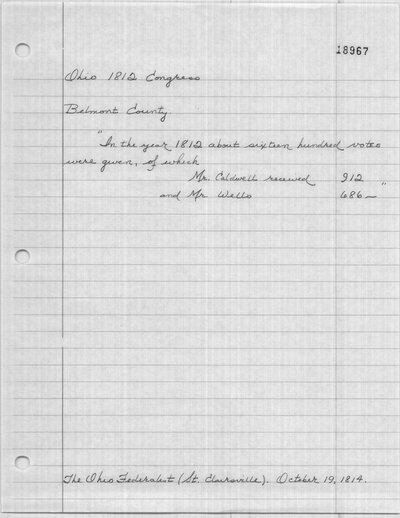 18967
Ohio 1812 Congress
Belmont County.
"In the year 1812 about sixteen hundred votes
were given, of which
Mr. Caldwell received 912
and Mr Wells 686—"
The Ohio Federalist (St. Clairsville). October 19, 1814.